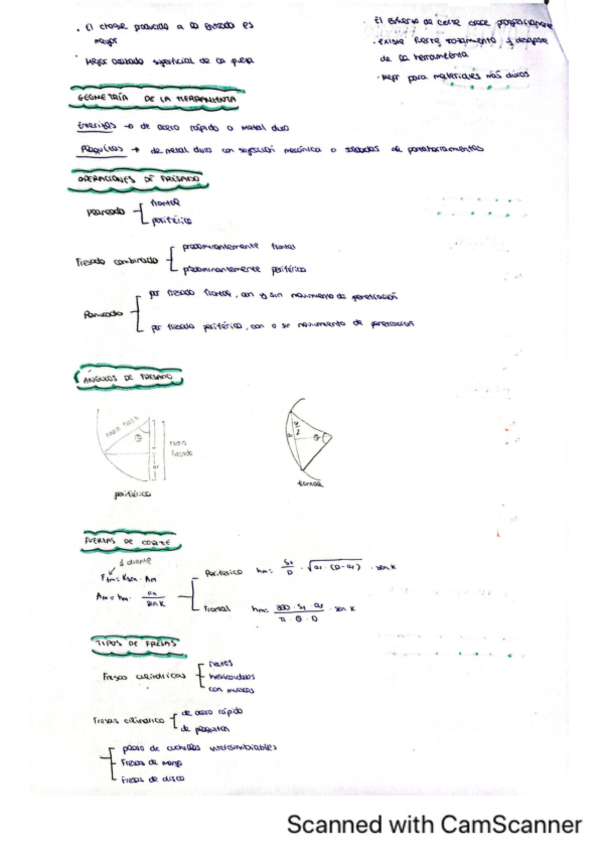 · El choque producido a la entrada es
mayor
· Mejor acabado superficial de la pieza
· El esfuerzo de corte crece progresivamente
· Existe fuerte rozamiento y desgaste
de la herramienta
· Mejor para materiales más duros
GEOMETRÍA DE LA HERRAMIENTA
Enterizas → de acero rápido o metal duro
Plaquitas → de metal duro con sujeción mecánica o soldadas al portaherramientas
OPERACIONES DE FRESADO
Planeado
frontal
periférico
Fresado combinado
predominantemente frontal
predominantemente periférico
Ranurado
por fresado frontal, con o sin movimiento de penetración
por fresado periférico, con o sin movimiento de penetración
ÁNGULOS DE FRESADO
radio fresa
θ
periférico
θ
frontal
FUERZAS DE CORTE
1 diente
Fsm = Ksm · Am
Am = hm ·
sen K
Periférico hm = Sz/D · √ar · (D-ar) · sen K
Frontal hm = 360 · Sz · ar / π · θ · D · sen K
TIPOS DE FRESAS
Fresas cilíndricas
rectas
helicoidales
con muescas
Fresas cilíndrico
de acero rápido
de plaquitas
plato de cuchillas intercambiables
Fresas de mango
Fresas de disco
Scanned with CamScanner